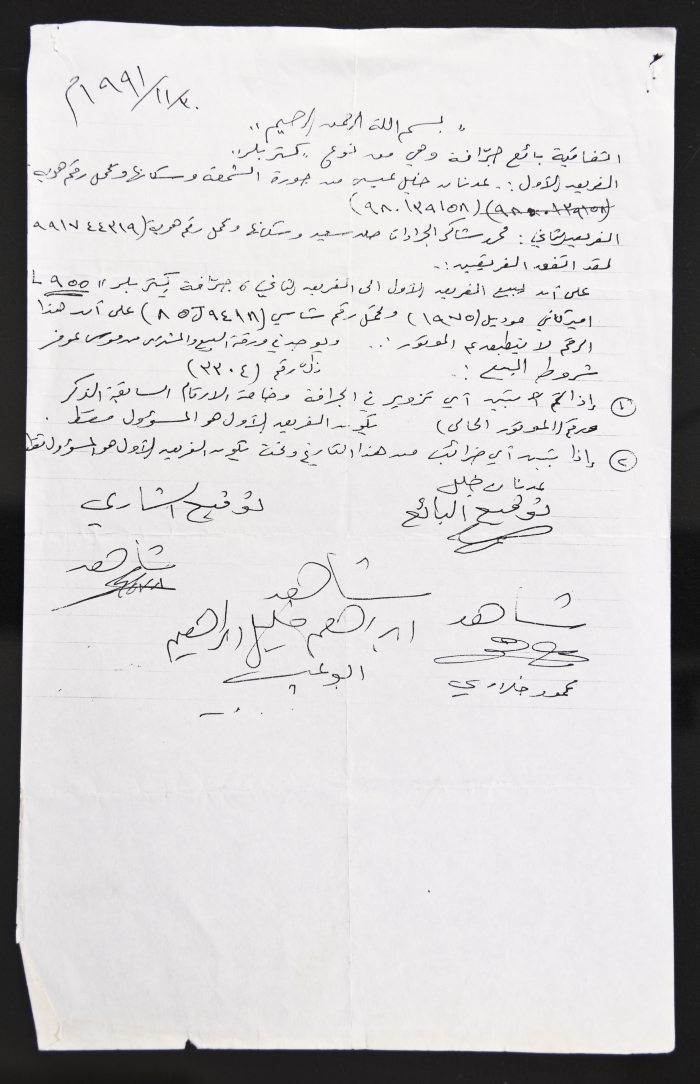 ١٩٩١/١١/٣٠م
" بسم الله الرحمن الرحيم "
اتفاقية بائع جرّافة وهي من نوع كتربلر
الفريق الأول :. عدنان خليل عيسى من جورة الشمعة وسكانها ويحمل رقم هوية
(٩٨٠١٣٩١٥٨)
الفريق الثاني : محمد شاكر الجرادات من سعير وسكانها ويحمل رقم هوية (٩٩١٧٤٤٣١٩
لقد اتفق الفريقين :.
على أن يبيع الفريق الأول الى الفريق الثاني جرّافة كتربلر L ٩٥٥
امريكاني موديل (١٩٧٥) ويحمل رقم شاسي (٨٥J٩٤١٨) على أن هذا
الرقم لا ينطبق مع الموتور :.. ويوجد في ورقة البيع والمشترى من موسى عوض
شروط البيع :. ذات رقم (٣٣٠٤)
① إذا تبين أي تزوير في الجرافة وخاصة الارقام السابقة الذكر
(الموتور الحالي) يكون الفريق الأول هو المسؤول فقط .
② إذا تبين أي ضرائب من هذا التاريخ وفت يكون الفريق الأول هو المسؤول فقط
عدنان خليل
توقيع البائع توقيع الشاري
شاهد
شاهد
شاهد
ابراهيم خليل ابراهيم
محمود